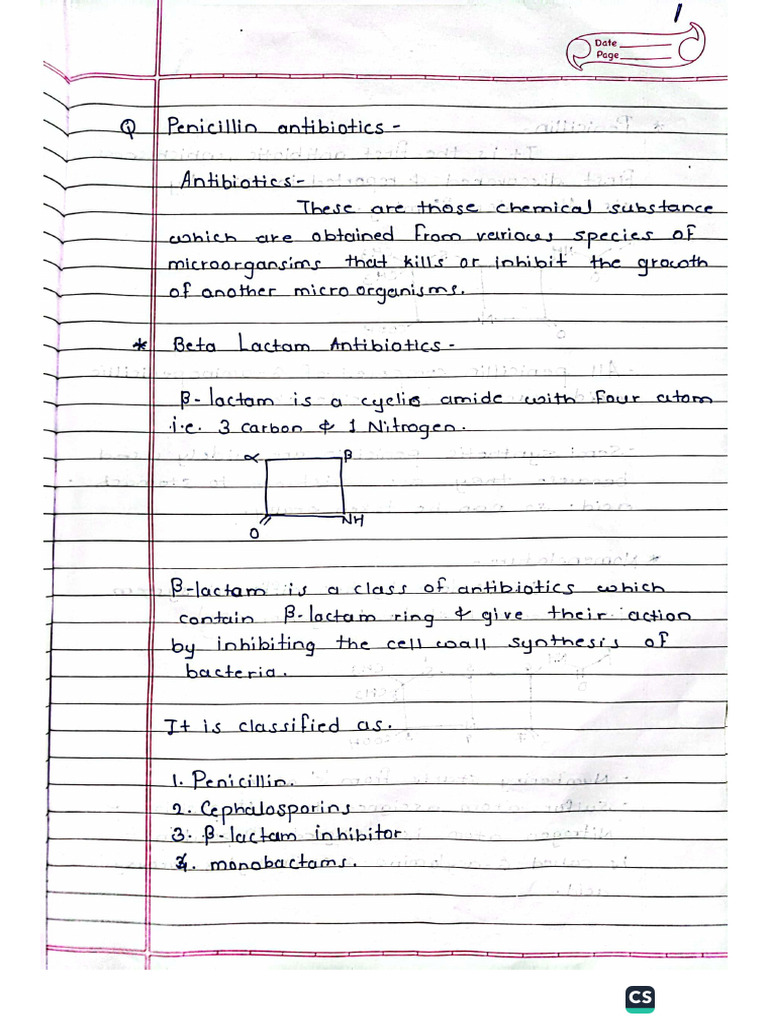 1
Date
Page
Q Penicillin antibiotics -
Antibiotics -
These are those chemical substance
which are obtained from various species of
microorgansims that kills or inhibit the growth
of another micro organisms.
* Beta Lactam Antibiotics -
β- lactam is a cyclic amide with four atom
i.e. 3 carbon & 1 Nitrogen.
α β
O NH
β-lactam is a class of antibiotics which
contain β-lactam ring & give their action
by inhibiting the cell wall synthesis of
bacteria.
It is classified as.
1. Penicillin.
2. Cephalosporins
3. β-lactam inhibitor
4. monobactams.
CS